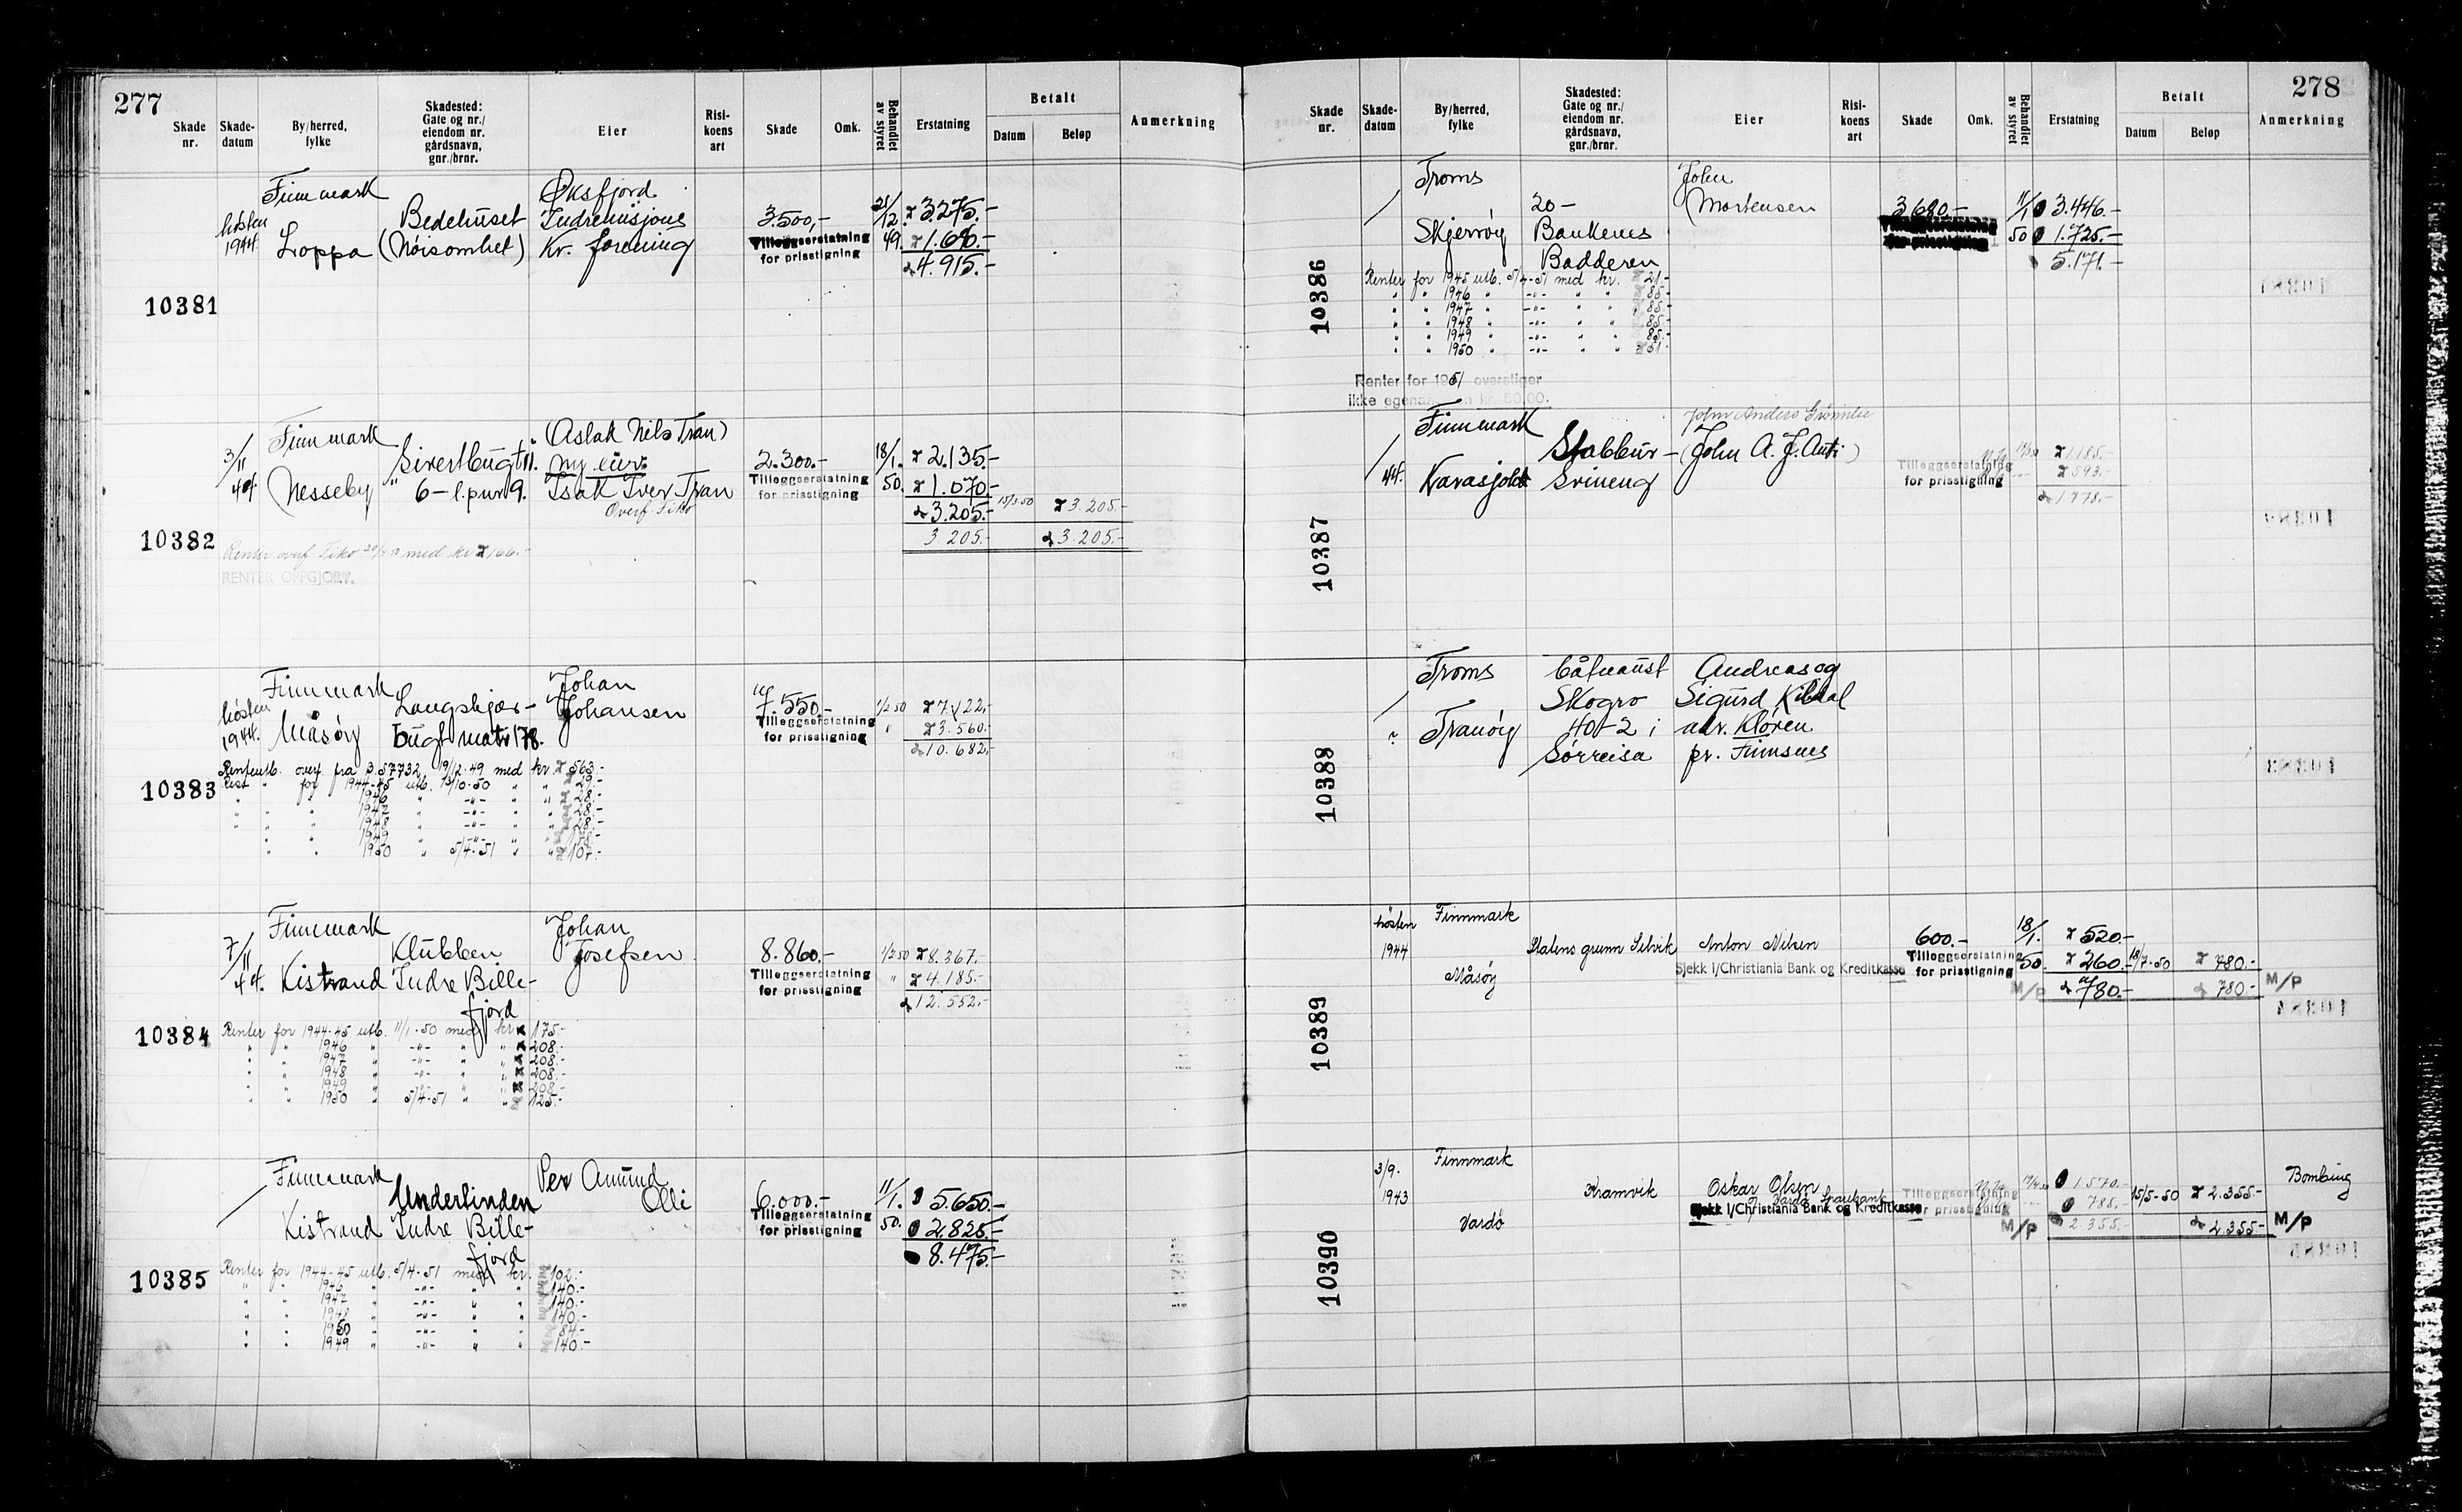 277
Skade nr.
Skade-datum
By/herred, fylke
Skadested: Gate og nr./ eiendom nr. gårdsnavn, gnr./brnr.
Eier
Risi-koens art
Skade
Omk.
Behandlet av styret
Erstatning
Betalt
Datum
Beløp
Anmerkning
10381
høsten 1944.
Finnmark
Loppa
Bedehuset
(Nøisomhet)
Øksfjord
Indremisjons
Kr. forening
3500,-
Tilleggserstatning
for prisstigning
21/12. 49.
3.275.-
4.915.-
10382
3/11 44.
Finnmark
Nesseby
Sivertbugt
6-l.pur 9.
(Aslak Nils Tran)
Isak Iver Tran
2.300.-
Tilleggserstatning
for prisstigning
18/1. 50.
2.135.-
1.070.-
3.205.-
15/3.50
3.205.-
3.205.-
3.205.-
med kr 166.-
RENTER OPPGJORT.
10383
høsten 1944.
Finnmark
Måsøy
Johan
Johansen
7.550.-
Tilleggserstatning
for prisstigning
1/2 50
7.122,-
3.560.-
10.682,-
Renteutb. overf. fra B.57732 19/12-49 med kr. 563.-
Rest " for 1944-45 utb. 13/10-50 " " 29.-
" " " 1946 " -"- " " 28.-
" " " 1947 " -"- " " 28.-
" " " 1948 " -"- " " 28.-
" " " 1949 " -"- " "
" " 1950 " 5/4-51 " " 107.-
10384
7/11 44.
Finnmark
Kistrand
Klubben
Indre Bille-
fjord
Johan
Josefsen
8.860.-
Tilleggserstatning
for prisstigning
1/2 50
8.367.-
4.185.-
12.552.-
Renter for 1944-45 utb. 11/1-50 med kr. 175.-
" " 1946 " -"- " " 208.-
" " 1947 " -"- " " 208.-
" " 1948 " -"- " " 208.-
" " 1949 " -"- " " 208.-
" " 1950 " 5/4-51 " " 125.-
10385
Finnmark
Kistrand
Underlinden
Indre Bille-
fjord
Per Amund
Olli
6.000.-
Tilleggserstatning
for prisstigning
11/1. 50.
5.650.-
2.825.-
8.475.-
Renter for 1944-45 utb. 5/4-51 med kr. 102.-
" " 1946 " -"- " " 140.-
" " 1947 " -"- " " 140.-
" " 1948 " -"- " " 140.-
" " 1950 " -"- " " 84.-
" " 1949 " -"- " " 140.-
278
Skade nr.
Skade-datum
By/herred, fylke
Skadested: Gate og nr./ eiendom nr. gårdsnavn, gnr./brnr.
Eier
Risi-koens art
Skade
Omk.
Behandlet av styret
Erstatning
Betalt
Datum
Beløp
Anmerkning
10386
Troms
Skjervøy
20-
Bankenes
Badderen
John
Mortensen
3.680.-
Tilleggserstatning
for prisstigning
11/1 50
3.446.-
1.725.-
5.171.-
Renter for 1945 utb. 5/4-51 med kr. 21.-
" " 1946 " -"- " " 85.-
" " 1947 " -"- " " 85.-
" " 1948 " -"- " " 85.-
" " 1949 " -"- " " 85.-
" " 1950 " -"- " " 51.-
Renter for 1951 overstiger
ikke egenandelen kr. 50.00.
10387
44.
Finnmark
Karasjokk
Stabbur-
Svineng
John Anders
(John A. J. Anti)
Tilleggserstatning
for prisstigning
1.185.-
593.-
1.778.-
10388
?
Troms
Tranøy
båtnaust
Skogro
40-2 i
Sørreisa
Andreas og
Sigurd Kildal
adr. Kloven
pr. Finnsnes
10389
høsten
1944
Finnmark
Måsøy
Statens grunn Selvik
Anton Nilsen
Sjekk i/Christiania Bank og Kreditkasse
600.-
Tilleggserstatning
for prisstigning
M/P
18/1. 50.
520.-
260.-
780.-
18/7-50
780.-
780.-
M/P
10390
3/9.
1943
Finnmark
Vardø
Kramvik
Oskar Olsen
Vardø Sparebank
Sjekk i/Christiania Bank og Kreditkasse
Tilleggserstatning
for prisstigning
M/P
1.570.-
785.-
2.355.-
15/5-50
2.355.-
2.355.-
Bombing
M/P